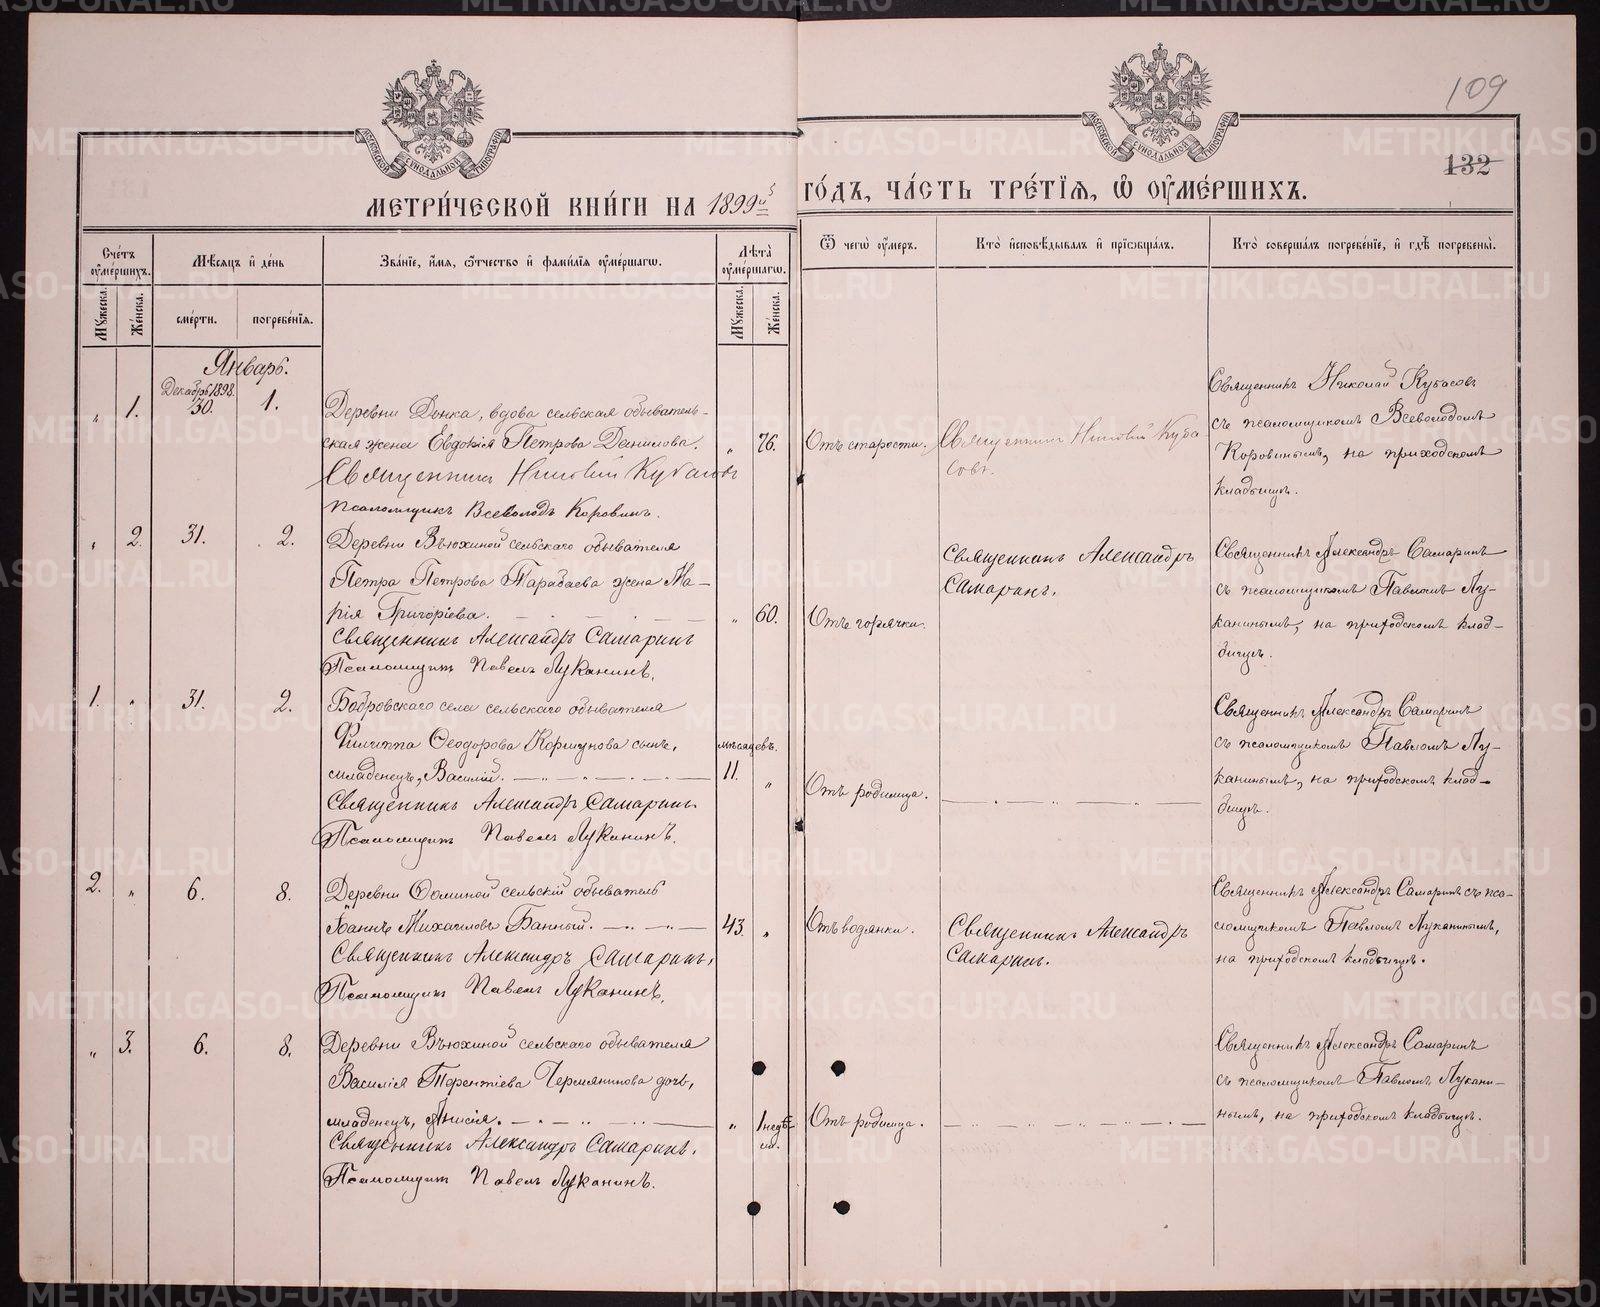 109
132
МОСКОВСКОЙ СѴНОДАЛЬНОЙ ТИПОГРАФІИ
МОСКОВСКОЙ СѴНОДАЛЬНОЙ ТИПОГРАФІИ
МЕТРИ́ЧЕСКОЙ КНИ́ГИ НА 1899й ГО́ДЪ, ЧА́СТЬ ТРЕ́ТІѦ, Ѡ҆ ОУ҆МЕ́РШИХЪ.
Счéтъ оу҆мéршихъ.
Мꙋжеска. Жéнска.
Мѣ́сѧцъ и҆ дéнь
смéрти. погребéнїѧ.
Звáнїе, и҆́мѧ, ѻ҆́тчество и҆ фамѝлїѧ оу҆мéршагѡ.
Лѣ́та оу҆мéршагѡ.
Мꙋжеска. Жéнска.
Ѿ чегѡ̀ оу҆́меръ.
Ктò и҆сповѣ́дывалъ и҆ прїѡбщáлъ.
Ктò совершáлъ погребéнїе, и҆ гдѣ̀ погребены̀.
Январь.
Декабрь 1898.
" 1. 30. 1.
Деревни Донка, вдова сельская обыватель-
ская жена Евдокія Петрова Данилова. " 76.
Священникъ Николай Кубасовъ
Псаломщикъ Всеволодъ Коровинъ.
Отъ старости.
Священникъ Николай Куба
совъ.
Священникъ Николай Кубасовъ
съ псаломщикомъ Всеволодомъ
Коровинымъ, на приходскомъ
кладбищѣ.
" 2. 31. 2.
Деревни Вьюхиной сельскаго обывателя
Петра Петрова Тарабаева жена Ма-
рія Григоріева. " 60.
Священникъ Александръ Самаринъ
Псаломщикъ Павелъ Луканинъ.
Отъ горячки.
Священникъ Александръ
Самаринъ.
Священникъ Александръ Самаринъ
съ псаломщикомъ Павломъ Лу-
канинымъ, на приходскомъ клад-
бищѣ.
1. " 31. 2.
Бобровскаго села сельскаго обывателя
Филиппа Ѳеодорова Коршунова сынъ,
младенецъ, Василій. мѣсяцевъ. 11. "
Священникъ Александръ Самаринъ.
Псаломщикъ Павелъ Луканинъ.
Отъ родимца.
Священникъ Александръ Самаринъ
съ псаломщикомъ Павломъ Лу-
канинымъ, на приходскомъ клад-
бищѣ.
2. " 6. 8.
Деревни Ѳоминой сельскій обыватель
Іоаннъ Михаиловъ Банный. 43 "
Священникъ Александръ Самаринъ,
Псаломщикъ Павелъ Луканинъ.
Отъ водянки.
Священникъ Александръ
Самаринъ.
Священникъ Александръ Самаринъ съ пса-
ломщикомъ Павломъ Луканинымъ,
на приходскомъ кладбищѣ.
" 3. 6. 8.
Деревни Вьюхиной сельскаго обывателя
Василія Терентіева Чермянинова дочь,
младенецъ, Анисія. " 1 недѣ
ли.
Священникъ Александръ Самаринъ.
Псаломщикъ Павелъ Луканинъ.
Отъ родимца.
Священникъ Александръ Самаринъ
съ псаломщикомъ Павломъ Лукани-
нымъ, на приходскомъ кладбищѣ.
METRIKI.GASO-URAL.RU